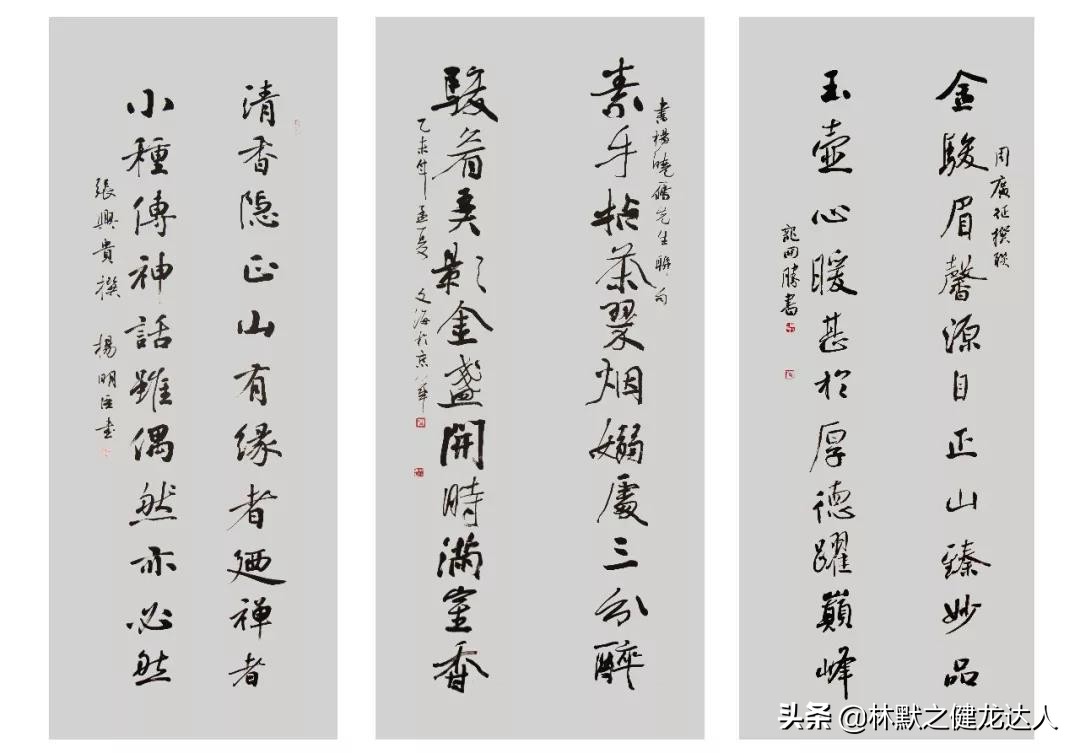 周廣征撰联
金駿眉馨源自正山臻妙品
玉壺心暖甚於厚德躍巔峰
龍開勝書
書楊曉先生聯句
素手拈茶翠烟嫋處三分醉
駿眉弄影金盞開時滿室香
乙未年孟夏文海於京華
清香隐正山有缘者廼禅者
小種傳神話雖偶然亦必然
張興貴撰 楊明臣書
头条 @林默之健龙达人